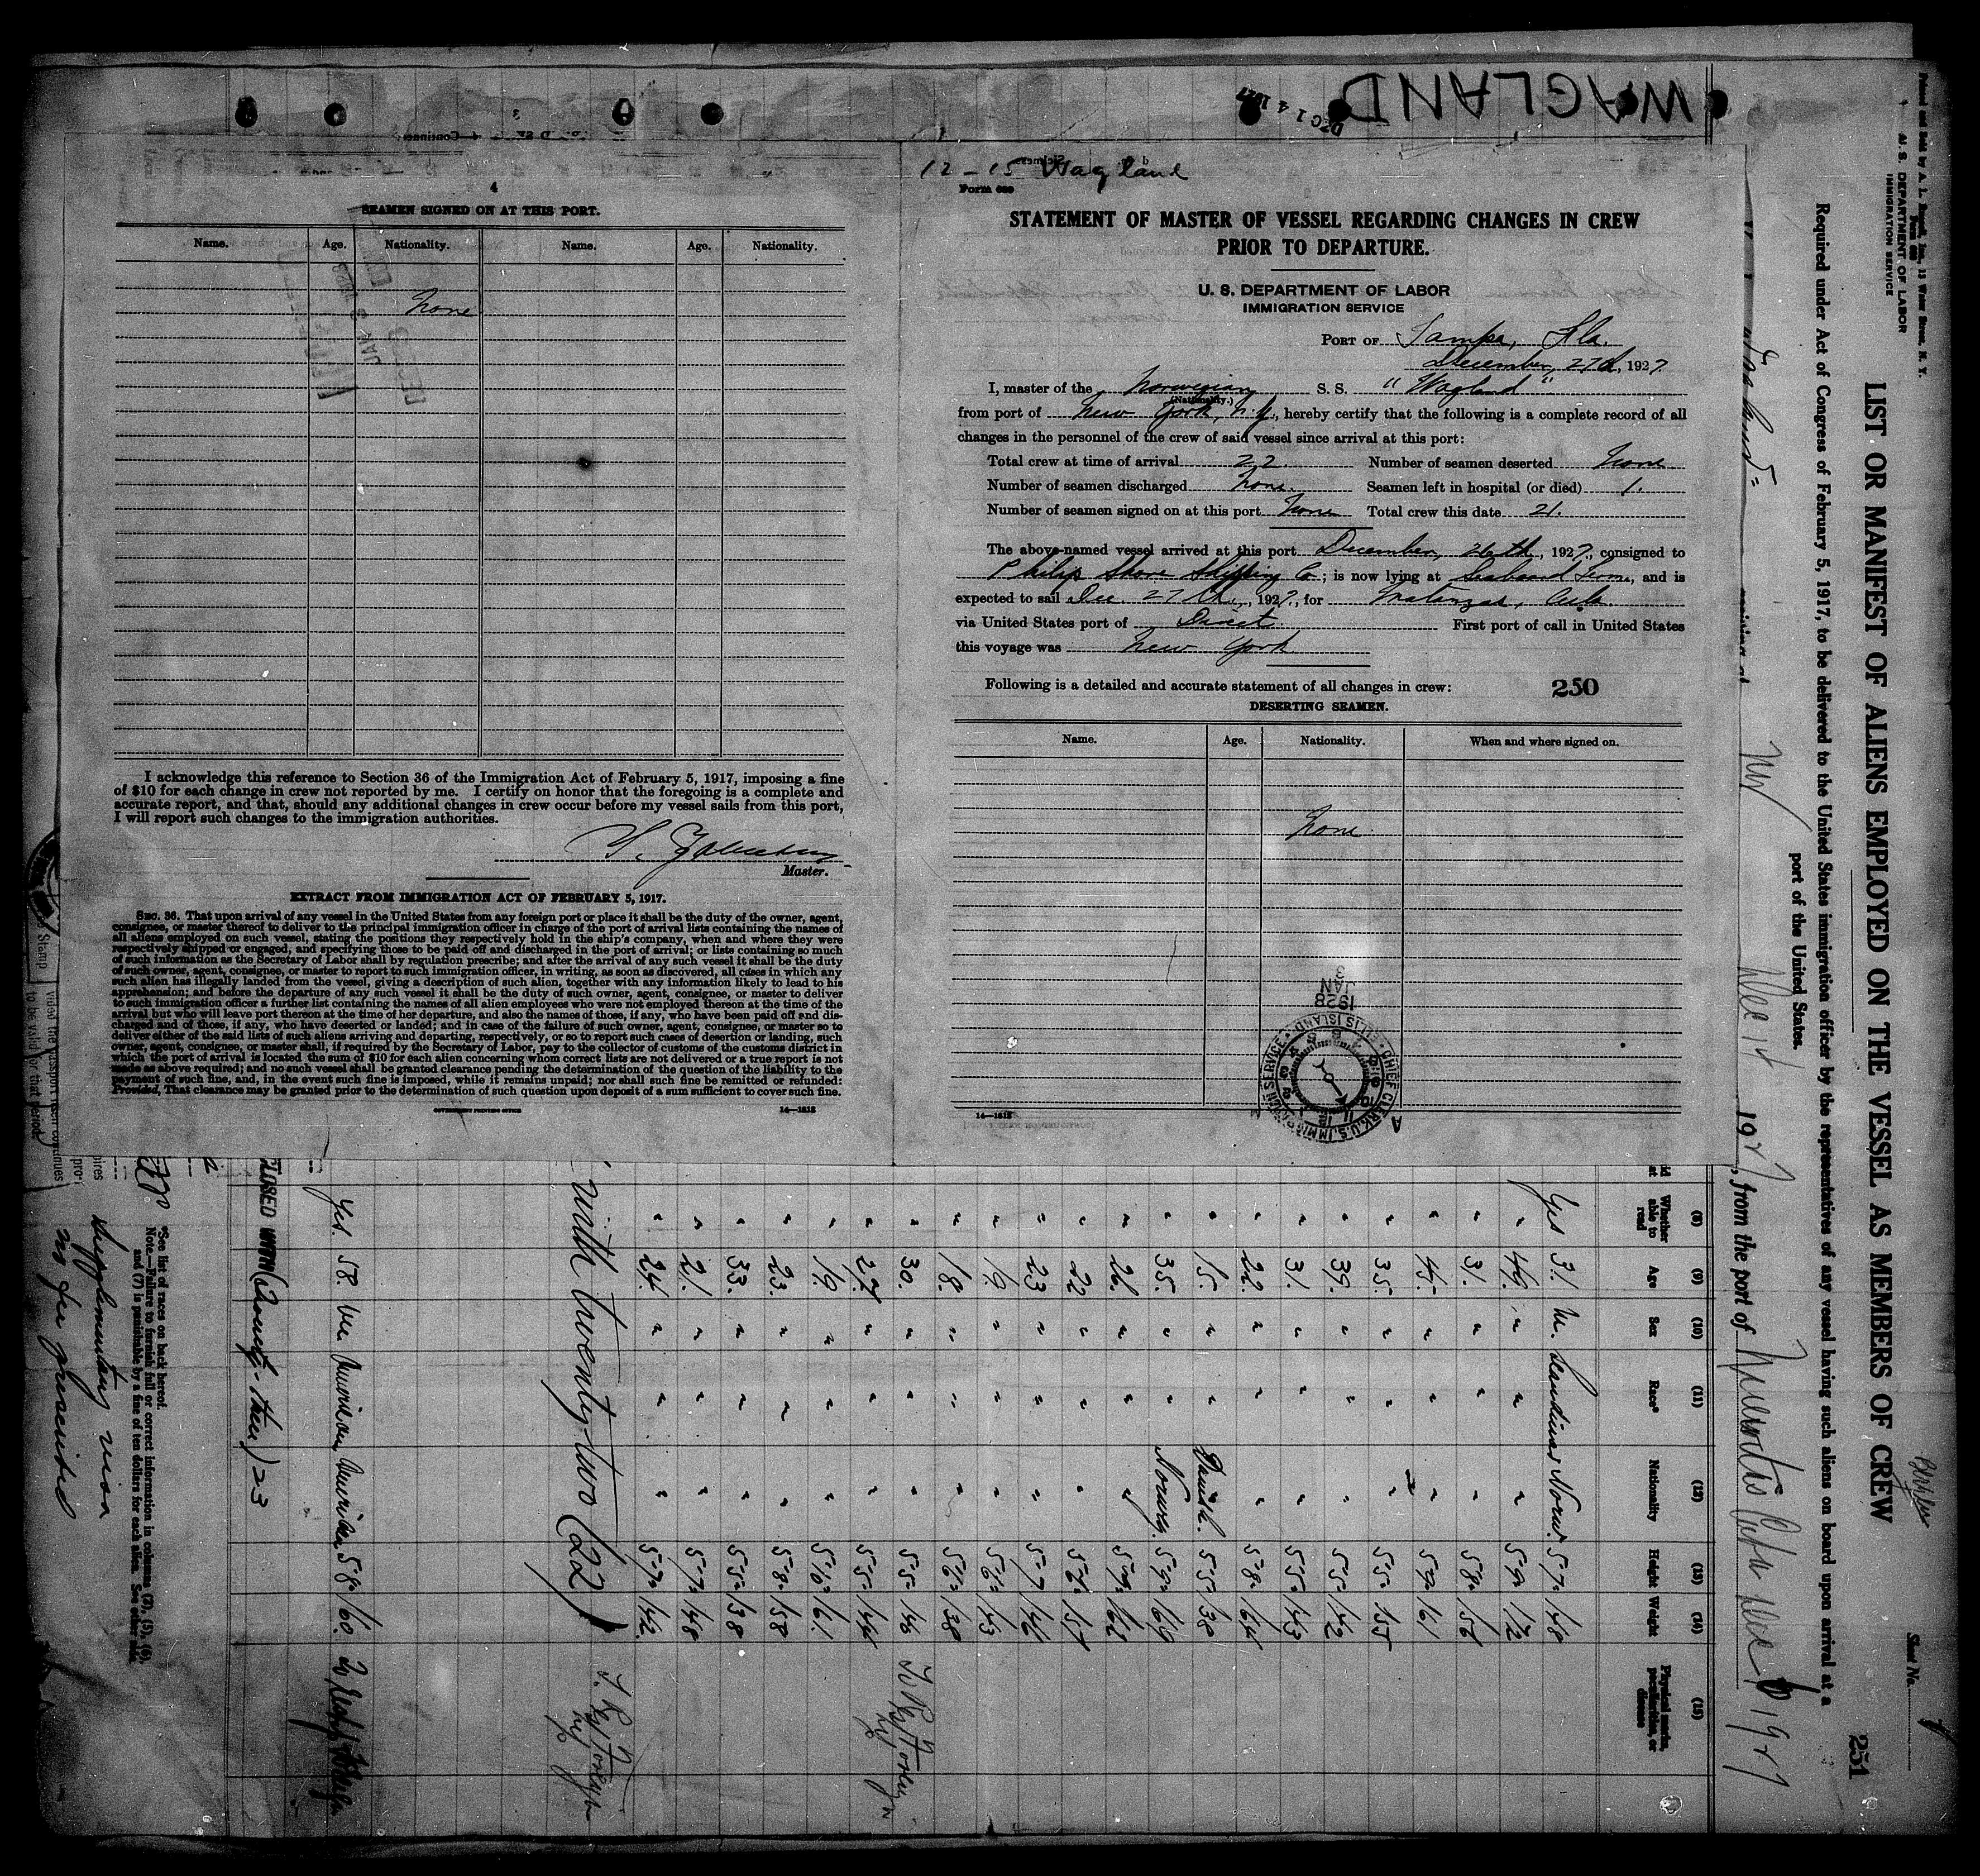 WAGLAND
DEC 14 1927
12-15 Wagland
4
SEAMEN SIGNED ON AT THIS PORT.
Name. Age. Nationality. Name. Age. Nationality.
None
I acknowledge this reference to Section 36 of the Immigration Act of February 5, 1917, imposing a fine
of $10 for each change in crew not reported by me. I certify on honor that the foregoing is a complete and
accurate report, and that, should any additional changes in crew occur before my vessel sails from this port,
I will report such changes to the immigration authorities.
Master.
EXTRACT FROM IMMIGRATION ACT OF FEBRUARY 5, 1917.
SEC. 36. That upon arrival of any vessel in the United States from any foreign port or place it shall be the duty of the owner, agent,
consignee, or master thereof to deliver to the principal immigration officer in charge of the port of arrival lists containing the names of
all aliens employed on such vessel, stating the positions they respectively hold in the ship's company, when and where they were
respectively shipped or engaged, and specifying those to be paid off and discharged in the port of arrival; or lists containing so much
of such information as the Secretary of Labor shall by regulation prescribe; and after the arrival of any such vessel it shall be the duty
of such owner, agent, consignee, or master to report to such immigration officer, in writing, as soon as discovered, all cases in which any
such alien has illegally landed from the vessel, giving a description of such alien, together with any information likely to lead to his
apprehension; and before the departure of any such vessel it shall be the duty of such owner, agent, consignee, or master to deliver
to such immigration officer a further list containing the names of all alien employees who were not employed thereon at the time of the
arrival but who will leave port thereon at the time of her departure, and also the names of those, if any, who have been paid off and dis-
charged and of those, if any, who have deserted or landed; and in case of the failure of such owner, agent, consignee, or master so to
deliver either of the said lists of such aliens arriving and departing, respectively, or so to report such cases of desertion or landing, such
owner, agent, consignee, or master shall, if required by the Secretary of Labor, pay to the collector of customs of the customs district in
which the port of arrival is located the sum of $10 for each alien concerning whom correct lists are not delivered or a true report is not
made as above required; and no such vessel shall be granted clearance pending the determination of the question of the liability to the
payment of such fine, and, in the event such fine is imposed, while it remains unpaid; nor shall such fine be remitted or refunded:
Provided, That clearance may be granted prior to the determination of such question upon deposit of a sum sufficient to cover such fine.
GOVERNMENT PRINTING OFFICE 14—1618
STATEMENT OF MASTER OF VESSEL REGARDING CHANGES IN CREW
PRIOR TO DEPARTURE.
U. S. DEPARTMENT OF LABOR
IMMIGRATION SERVICE
PORT OF Tampa, Fla.
December, 27th, 1927
I, master of the Norwegian S. S. "Wagland"
(Nationality.)
from port of New York, N.Y., hereby certify that the following is a complete record of all
changes in the personnel of the crew of said vessel since arrival at this port:
Total crew at time of arrival 22. Number of seamen deserted None
Number of seamen discharged None. Seamen left in hospital (or died) 1.
Number of seamen signed on at this port None Total crew this date 21.
The above-named vessel arrived at this port December, 26th, 1927, consigned to
Philip Shore Shipping Co; is now lying at Seaboard Term., and is
expected to sail Dec. 27th, 1927, for Matanzas, Cuba.
via United States port of Direct First port of call in United States
this voyage was New York
Following is a detailed and accurate statement of all changes in crew: 250
DESERTING SEAMEN.
Name. Age. Nationality. When and where signed on.
None
JAN 3 1928
CHIEF CLERK, U.S. IMMIGRATION SERVICE ELLIS ISLAND
14—1618
Sheet No. 1
251
U. S. DEPARTMENT OF LABOR
IMMIGRATION SERVICE
LIST OR MANIFEST OF ALIENS EMPLOYED ON THE VESSEL AS MEMBERS OF CREW
Required under Act of Congress of February 5, 1917, to be delivered to the United States immigration officer by the representatives of any vessel having such aliens on board upon arrival at a
port of the United States.
Dec 14 1927, from the port of Nuevitas Cuba Dec 6 1927
(8) (9) (10) (11) (12) (13) (14) (15)
Whether able to read Age Sex Race* Nationality Height Weight Physical marks, peculiarities, or disease
Yes 31. M. Scandinav Norw. 5-7 148
" 49. " " " 5-9 172
" 31. " " " 5-8 156
" 45. " " " 5-9 161
" 35. " " " 5-5 155
" 39. " " " 5-5 142
" 31. " " " 5-5 143
" 22. " " " 5-8 164
" 15. " " Danish. 5-5 138
" 35. " " Norweg. 5-9 169
" 26. " " " 5-9 162
" 22 " " " 5-6 157
" 23 " " " 5-7 146
" 19. " " " 5-6 143
" 18. " " " 5-6 138
" 30. " " " 5-5 140
" 27. " " " 5-5 144
" 19. " " " 5-10 161.
" 23. " " " 5-8 158
" 33. " " " 5-5 138
" 21. " " " 5-7 148
" 24. " " " 5-7 142.
with twenty-two (22)
Yes. 58. M American American 5-8 160.
CLOSED WITH (Twenty-three) 23
*See list of races on back hereof.
Note.—Failure to furnish full or correct information in columns (3), (5), (6),
and (7) is punishable by a fine of ten dollars for each alien. See other side.
Supplementary visa
no fee prescribed